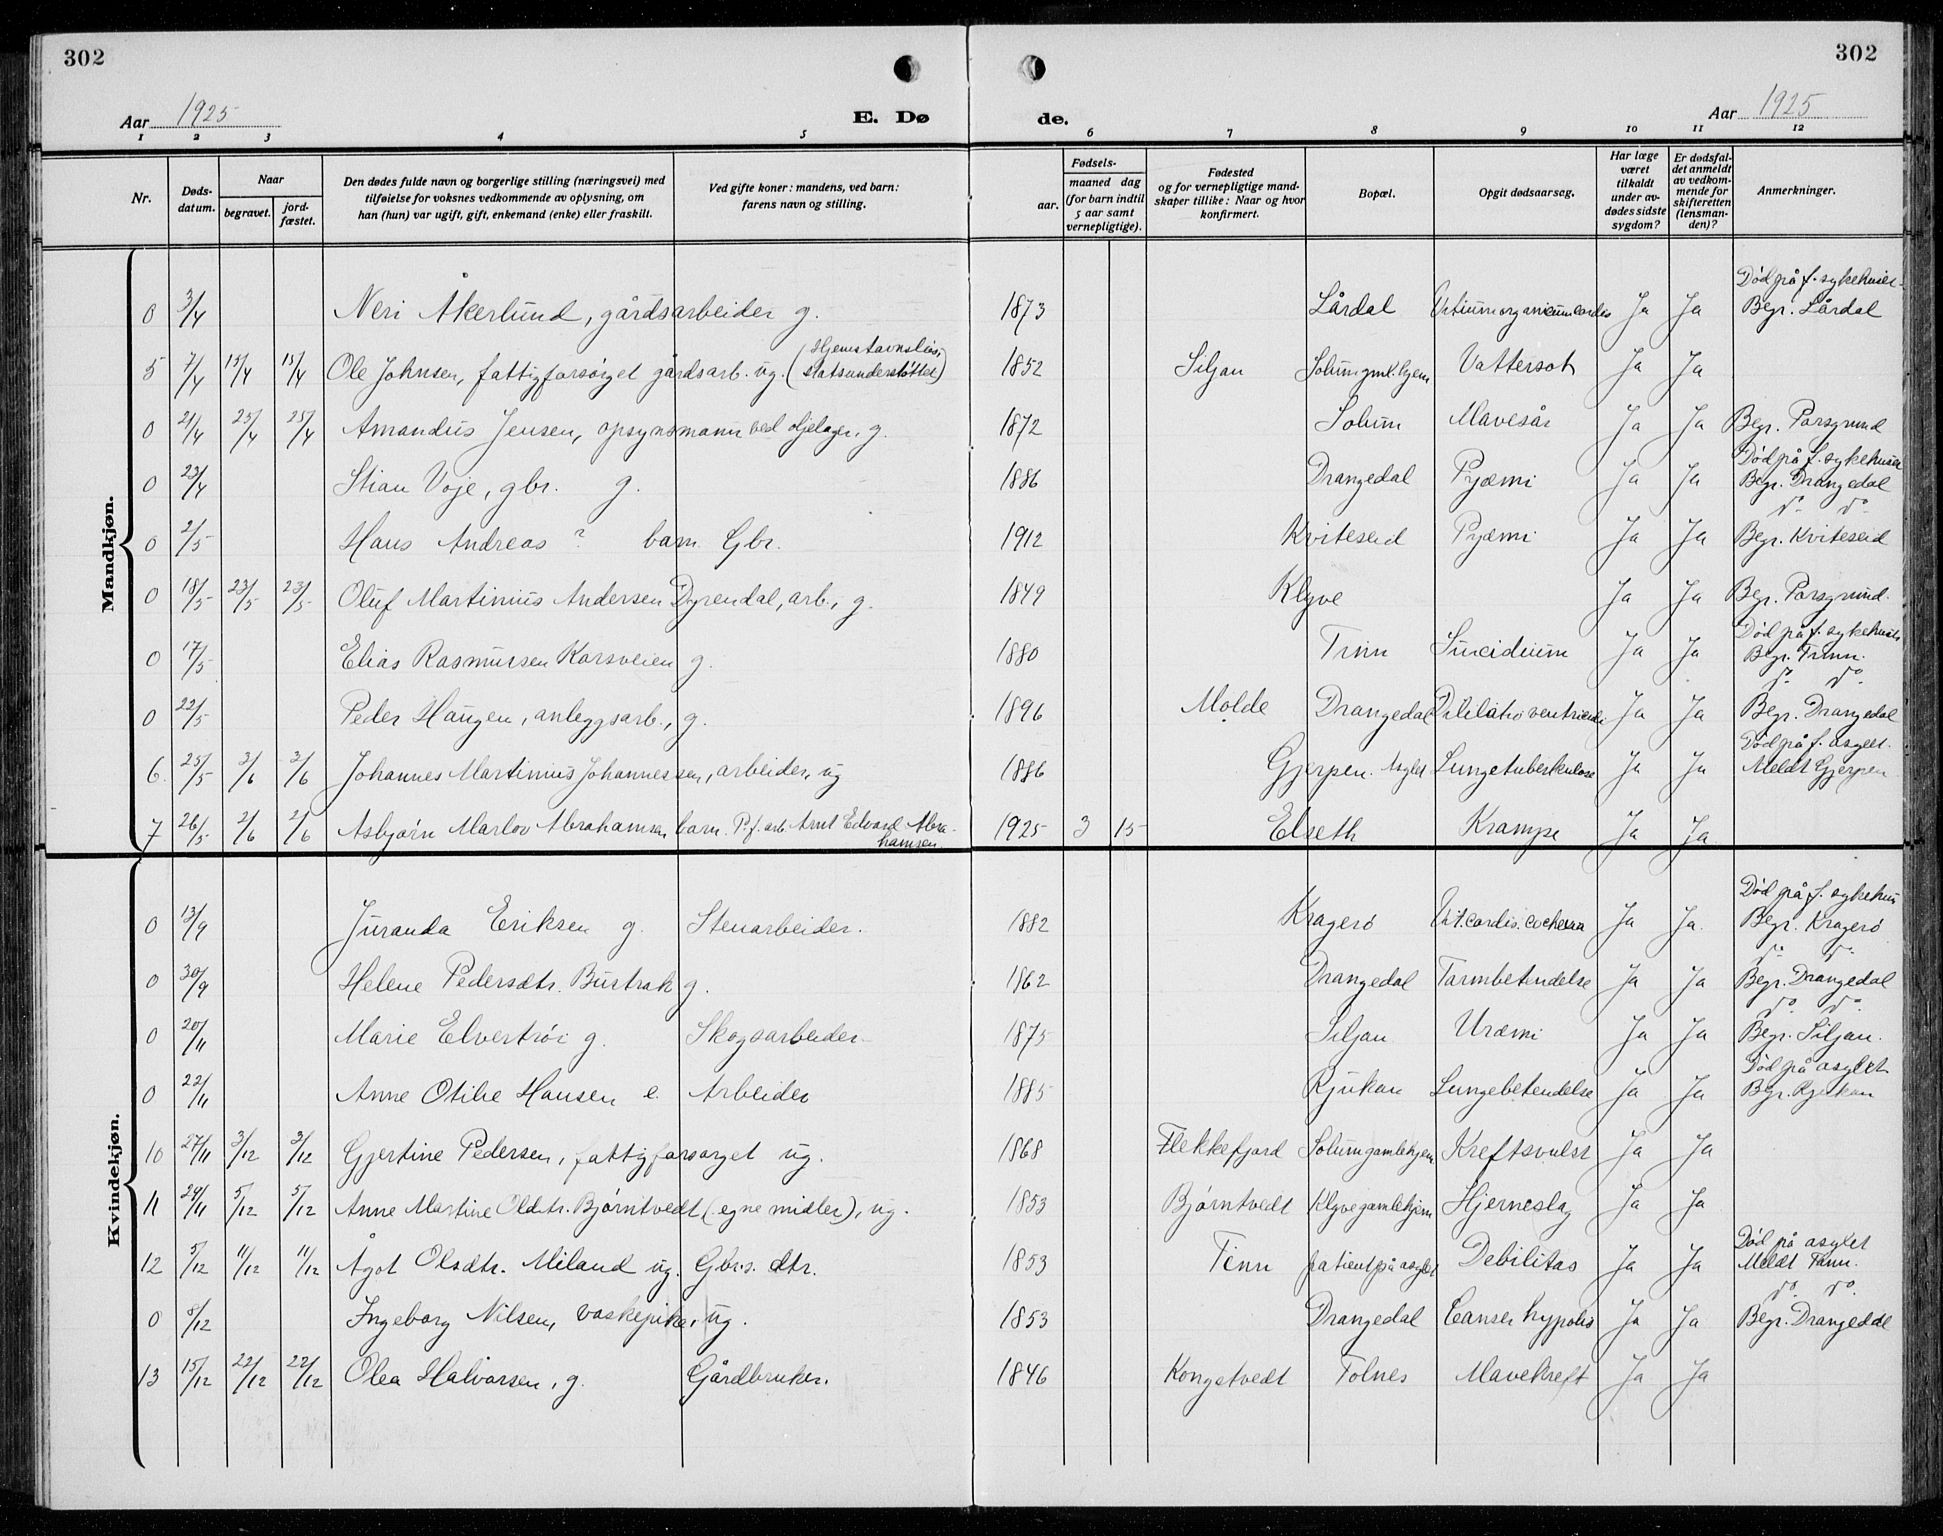 302
302
Aar 1925
E. Dø
de.
Aar 1925
1 2 3 4 5 6 7 8 9 10 11 12
Nr.
Døds-
datum.
Naar
begravet.
jord-
fæstet.
Den dødes fulde navn og borgerlige stilling (næringsvei) med
tilføielse for voksnes vedkommende av oplysning, om
han (hun) var ugift, gift, enkemand (enke) eller fraskilt.
Ved gifte koner: mandens, ved barn:
farens navn og stilling.
Fødsels-
aar.
maaned dag
(for barn indtil
5 aar samt
vernepligtige).
Fødested
og for vernepligtige mand-
skaper tillike: Naar og hvor
konfirmert.
Bopæl.
Opgit dødsaarsag.
Har læge
været
tilkaldt
under av-
dødes sidste
sygdom?
Er dødsfal-
det anmeldt
av vedkom-
mende for
skifteretten
(lensman-
den)?
Anmerkninger.
Mandkjøn.
Død på f. sykehuset
0 3/4 Neri Åkerlund, gårdsarbeider g. 1873 Lårdal Vitium organicum cordis Ja Ja Begr. Lårdal
(Hjemstavnsløs,
5 7/4 15/4 15/4 Ole Johnsen, fattigforsørget gårdsarb. ug. statsunderstøttet) 1852 Siljan Solum gml. hjem Vattersot Ja Ja
0 21/4 25/4 25/4 Amandus Jensen, opsynsmann ved oljelager, g. 1872 Solum Mavesår Ja Ja Begr. Porsgrund
Død på f. sykehuset
0 23/4 Stian Voje, gbr. g. 1886 Drangedal Pyæmi Ja Ja Begr. Drangedal
do. do.
0 2/5 Hans Andreas ? barn Gbr. 1912 Kviteseid Pyæmi Ja Ja Begr. Kviteseid
0 18/5 23/5 23/5 Oluf Martinius Andersen Dyrendal, arb., g. 1849 Klyve Ja Ja Begr. Porsgrund.
Død på f. sykehuset
0 17/5 Elias Rasmussen Korsveien g. 1880 Tinn Suicidium Ja Ja Begr. Tinn.
do. do.
0 22/5 Peder Haugen, anleggsarb., g. 1896 Molde Drangedal Dililatio ventriculi Ja Ja Begr. Drangedal
Død på f. asylet.
6. 25/5 3/6 3/6 Johannes Martinius Johannessen, arbeider, ug 1886 Gjerpen. Asylet Lungetuberkulose Ja Ja Meldt Gjerpen
7 26/5 2/6 2/6 Asbjørn Marlov Abrahamsen barn P. f. arb. Arnt Edvard Abra-
hamsen 1925 3 15 Elseth Krampe Ja Ja
Kvindekjøn.
Død på f. sykehus
0 13/9 Juranda Eriksen g. Stenarbeider. 1882 Kragerø Vit. cordis. Ja Ja. Begr. Kragerø
do. do.
0 30/9 Helene Pedersdtr. Bustrak g. 1862 Drangedal Tarmbetendelse Ja Ja Begr. Drangedal
do. do.
0 20/11 Marie g. Skogsarbeider 1875 Siljan Uræmi Ja Ja Begr. Siljan.
Død på asylet
0 22/11 Anne Otilie Hansen e. Arbeider 1885 Rjukan Lungebetendelse Ja Ja Begr. Rjukan
10 27/11 3/12 3/12 Gjertine Pedersen, fattigforsørget ug. 1868 Flekkefjord Solum gamlehjem Kreftsvulst Ja Ja
11 29/11 5/12 5/12 Anne Martine Olsdtr. Bjørntvedt (egne midler), ug. 1853 Bjørntvedt Klyve gamlehjem Hjerneslag Ja Ja
Død på asylet
12 5/12 11/12 11/12 Ågot Olsdtr. Miland ug. Gbr.s. dtr. 1853 Tinn patient på asylet Debilitas Ja Ja Meldt Tinn.
do. do.
0 8/12 Ingeborg Nilsen, vaskepike, ug. 1853 Drangedal Ja Ja Begr. Drangedal
13 15/12 22/12 22/12 Olea Halvorsen, g. Gårdbruker. 1846 Kongstvedt Tolnes Mavekreft Ja Ja